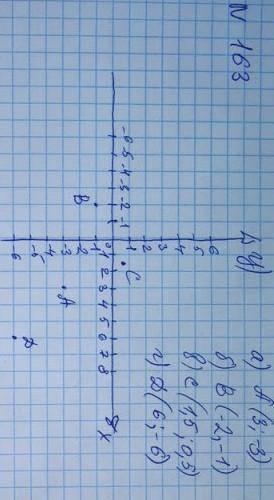 N 163
а) A (3; -3)
б) B (-2, -1)
в) C (1,5; 0,5)
г) D (6; -6)
y
6
5
4
3
2
1
C
-6 -5 -4 -3 -2 -1 0 1 2 3 4 5 6 7 8 x
B
-1
-2
-3
A
-4
-5
-6
D